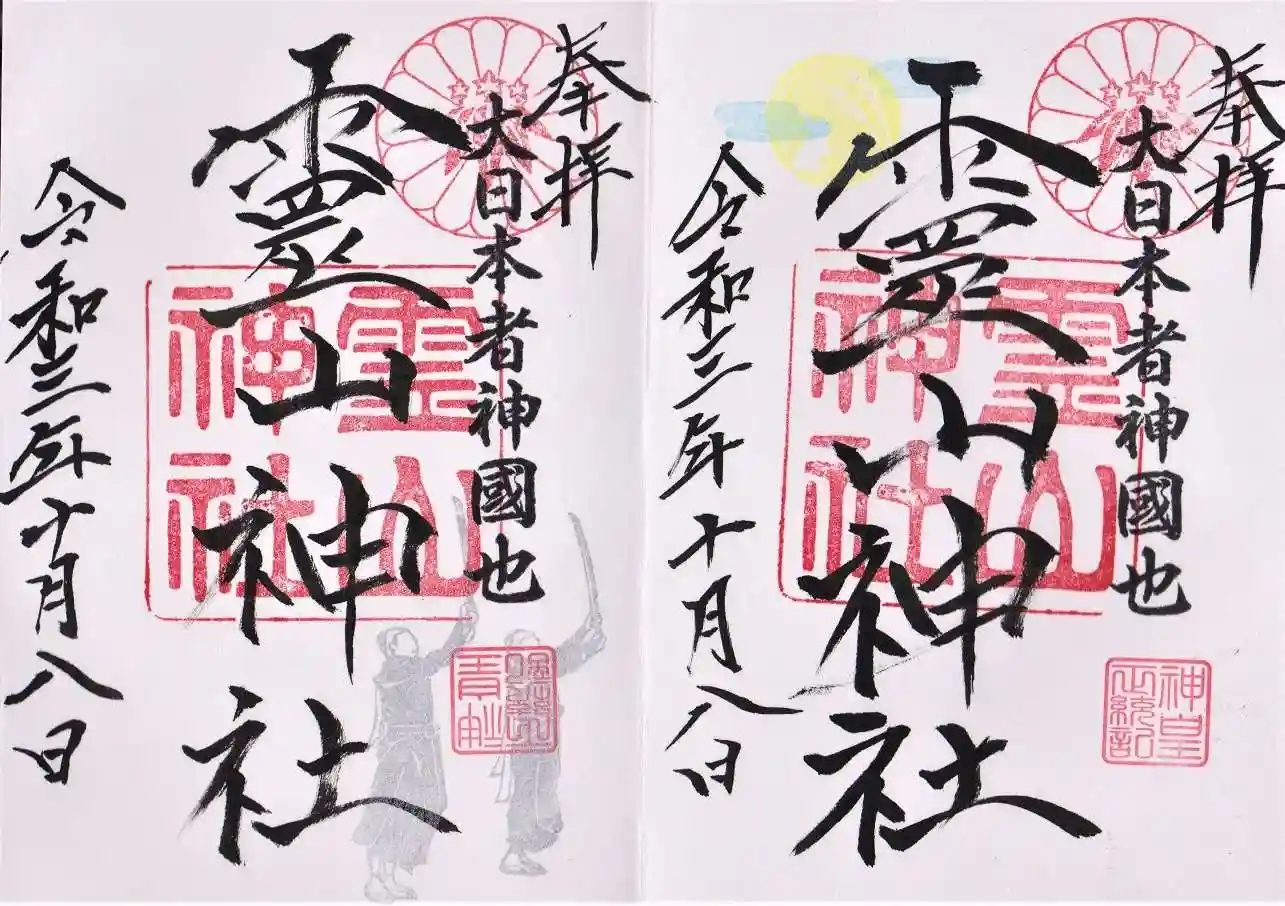 奉拝
大日本者神國也
靈山神社
令和三年十月八日
靈山神社
奉拝
大日本者神國也
靈山神社
令和三年十月八日
靈山神社
神皇正統記